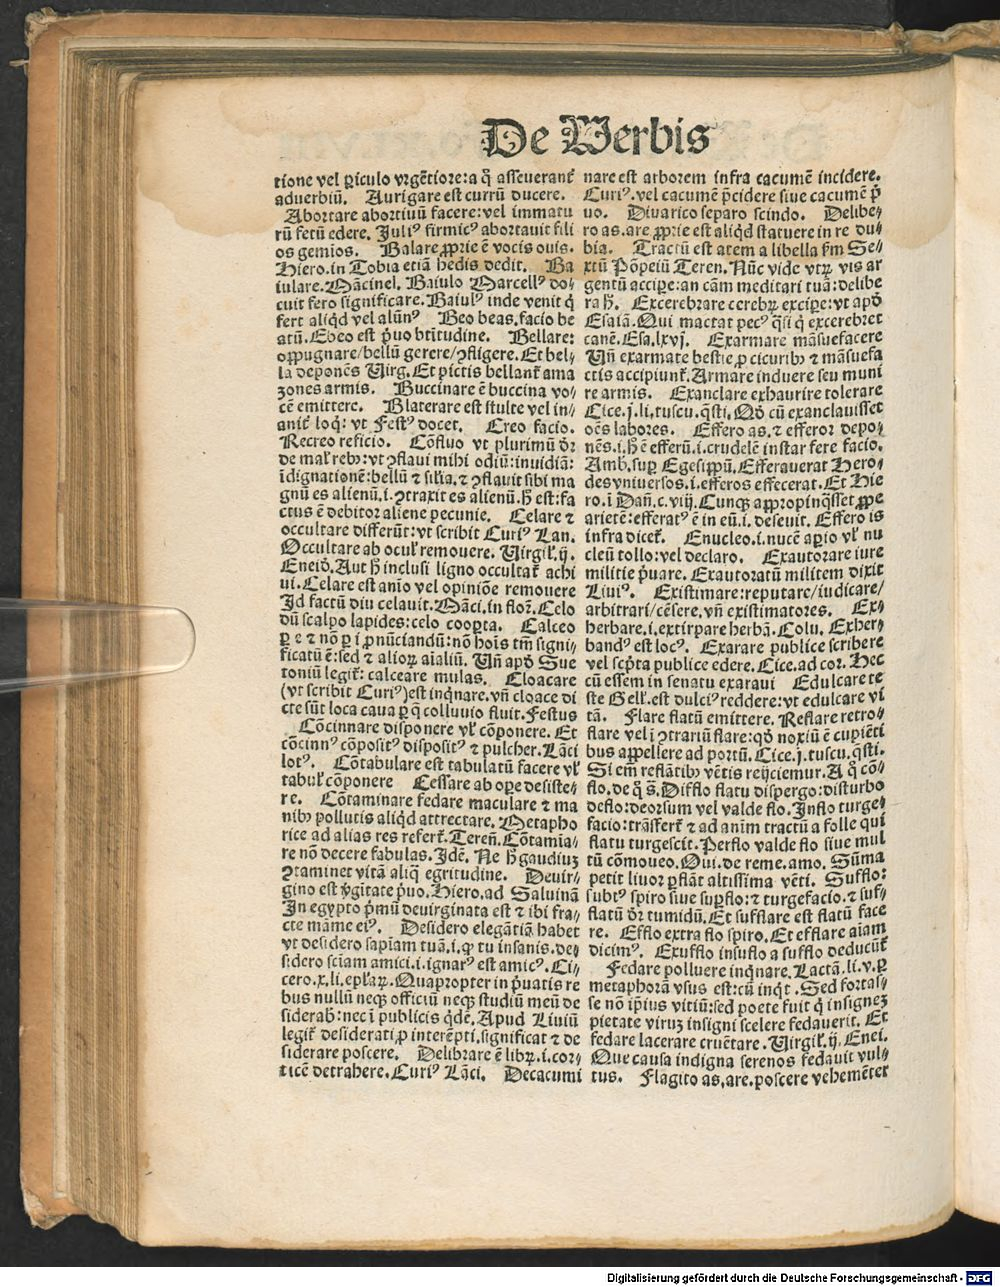 De Verbis
tione vel ꝑiculo vrgētiore: a q̊ asseuerant̃
aduerbiū. Aurigare est currū ducere.
Abortare abortiuū facere: vel immatu
rū fetū edere. Juliꝰ firmicꝰ abortauit fili
os gemios. Balare ꝓprie ē vocis ouis.
Hiero. in Tobia etiā hedis dedit. Ba
iulare. Mācinel. Baiulo Marcellꝰ do⸗
cuit fero significare. Baiulꝰ inde venit q̇
fert aliqḋ vel alūnꝰ Beo beas. facio be
atū. Ebeo est p̄uo btītudine. Bellare:
oppugnare/bellū gerere/ꝯfligere. Et bel⸗
la deponēs Virg. Et pictis bellant̃ ama
zones armis. Buccinare ē buccina vo⸗
cē emittere. Blaterare est stulte vel in⸗
anit̃ loq̇: vt Festꝰ docet. Creo facio.
Recreo reficio. Cōfluo vt plurimū dr̄
de mal̃ rebꝰ: vt ꝯflaui mihi odiū: inuidiā:
īdignationē: bellū ⁊ sil̃ia. ⁊ ꝯflauit sibi ma
gnū es alienū. i. ꝯtraxit es alienū. ħ est: fa
ctus ē debitor aliene pecunie. Celare ⁊
occultare differūt: vt scribit Curiꝰ Lan.
Occultare ab ocul̃ remouere. Virgil̃. ij.
Eneid̓. Aut ħ inclusi ligno occultant̃ achi
ui. Celare est anīo vel opiniōe remouere
Id factū diu celauit. Māci. in floȓ. Celo
dū scalpo lapides: celo cooꝑta. Calceo
ꝑ e ⁊ nō ꝑ i ꝓnūciandū: nō hoīs tm̄ signi⸗
ficatū ē: sed ⁊ alioꝝ aīaliū. Vñ apḋ Sue
toniū legit̃: calceare mulas. Cloacare
(vt scribit Curiꝰ) est inq̇nare. vñ cloace di
cte sūt loca caua ꝑ q̄ colluuio fluit. Festus
Cōcinnare disponere vl̃ cōponere. Et
cōcinnꝰ cōpositꝰ dispositꝰ ⁊ pulcher. Lāci
lotꝰ. Cōtabulare est tabulatū facere vl̃
tabul̃ cōponere Cessare ab oꝑe desiste⸗
re. Cōtaminare fedare maculare ⁊ ma
nibꝰ pollutis aliqḋ attrectare. Metapho
rice ad alias res refert̃. Tereñ. Cōtamīa⸗
re nō decere fabulas. Idē. Ne ħ gaudiuꝫ
ꝯtaminet vitā aliq̄ egritudine. Deuir⸗
gino est v̓gītate p̄uo. Hiero. ad Saluinā
In egypto p̄mū deuirginata est ⁊ ibi fra⸗
cte māme eiꝰ. Desidero elegātiā habet
vt desidero sapīam tuā. i. ꝙ tu insanis. de⸗
sidero sciam amici. i. ignarꝰ est amicꝰ. Ci⸗
cero. x. li. epl̃aꝝ. Quapropter in p̄uatis re
bus nullū neqꝫ officiū neqꝫ studiū meū de
siderab̓: nec ī publicis q̇dē. Apud Liuiū
legit̃ desiderati ꝓ interēpti. significat ⁊ de
siderare poscere. Delibrare ē libꝝ. i. cor⸗
ticē detrahere. Curiꝰ Lāci. Decacumi
nare est arborem infra cacumē incidere.
Curiꝰ. vel cacumē p̄cidere siue cacumē p̄
uo. Diuarico separo scindo. Delibe⸗
ro as. are. ꝓprie est aliqḋ statuere in re du⸗
bia. Tractū est atem a libella ẜm Se⸗
xtū Pōpeiū Teren. Nūc vide vtꝝ vis ar
gentū acciꝑe: an cām meditari tuā: delibe
ra ħ. Excerebrare cerebꝝ exciꝑe: vt apḋ
Esaiā. Qui mactat pecꝰ q̄si q̇ excerebret
canē. Esa. lxvj. Exarmare māsuefacere
Vñ exarmate bestie ꝓ cicuribꝰ ⁊ māsuefa
ctis accipiunt̃. Armare induere seu muni
re armis. Exanclare exhaurire tolerare
Cice. j. li. tuscu. q̄sti. Qḋ cū exanclauisset
oēs labores. Effero as. ⁊ efferor depo⸗
nēs. i. ħ ē efferū. i. crudelē instar fere facio.
Amb. suꝑ Egesippū. Efferauerat Hero⸗
des vniuersos. i. efferos effecerat. Et Hie
ro. i Dañ. c. viij. Cunqꝫ appropinq̇sset ꝓpe
arietē: efferatꝰ ē in eū. i. deseuit. Effero is
infra dicet̃. Enucleo. i. nucē aꝑio vl̃ nu
cleū tollo: vel declaro. Exautorare iure
militie p̄uare. Exautoratū militem dixit
Liuiꝰ. Existimare: reputare/iudicare/
arbitrari/cēsere. vñ existimatores. Ex⸗
herbare. i. extirpare herbā. Colu. Exher⸗
bandꝰ est locꝰ. Exarare publice scribere
vel sc̄pta publice edere. Cice. ad cor. Hec
cū essem in senatu exaraui Edulcare te
ste Gell̃. est dulciꝰ reddere: vt edulcare vi
tā. Flare flatū emittere. Reflare retro⸗
flare vel ī ꝯtrariū flare: qḋ noxiū ē cupiēti
bus appellere ad portū. Cice. j. tuscu. q̄sti.
Si em̄ reflātibꝰ vētis reijciemur. A q̊ cō⸗
flo. de q̊ s̄. Difflo flatu dispergo: disturbo
deflo: deorsum vel valde flo. Inflo turge⸗
facio: trāsfert̃ ⁊ ad anim̄ tractū a folle qui
flatu turgescit. Perflo valde flo siue mul
tū cōmoueo. Oui. de reme. amo. Sūma
petit liuor ꝑflāt altissima vēti. Sufflo:
subtꝰ spiro siue suꝑflo: ⁊ turgefacio. ⁊ suf⸗
flatū dr̄ tumidū. Et sufflare est flatū face
re. Efflo extra flo spiro. Et efflare aīam
dicimꝰ. Exufflo insuflo a sufflo deducūt̃
Fedare polluere inq̇nare. Lactā. li. v. ꝑ
metaphorā vsus est: cū inqt̄. Sed fortas⸗
se nō ip̄ius vitiū: sed poete fuit q̇ insigneꝫ
pietate viruꝫ insigni scelere fedauerit. Et
fedare lacerare cruētare. Virgil̃. ij. Enei.
Que causa indigna serenos fedauit vul⸗
tus. Flagito as. are. poscere vehemēter
Digitalisierung gefördert durch die Deutsche Forschungsgemeinschaft - DFG